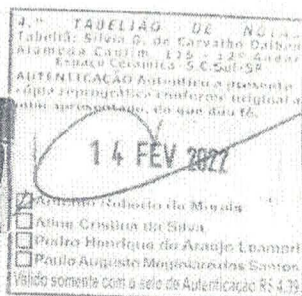 4.º TABELIÃO DE NOTAS
Tabeliã: Silvia G. de Carvalho
Alameda Caulim 115 - 12º Andar
Espaço Cerâmica - S.C.Sul-SP
AUTENTICAÇÃO Autentico a presente
cópia reprográfica conforme original a
mim apresentado, do que dou fé.
14 FEV 2022
Roberto de Morais
Aline Cristina da Silva
Pedro Henrique de Araujo
Paulo Augusto dos Santos
Válido somente com o selo de Autenticação R$ 4,39